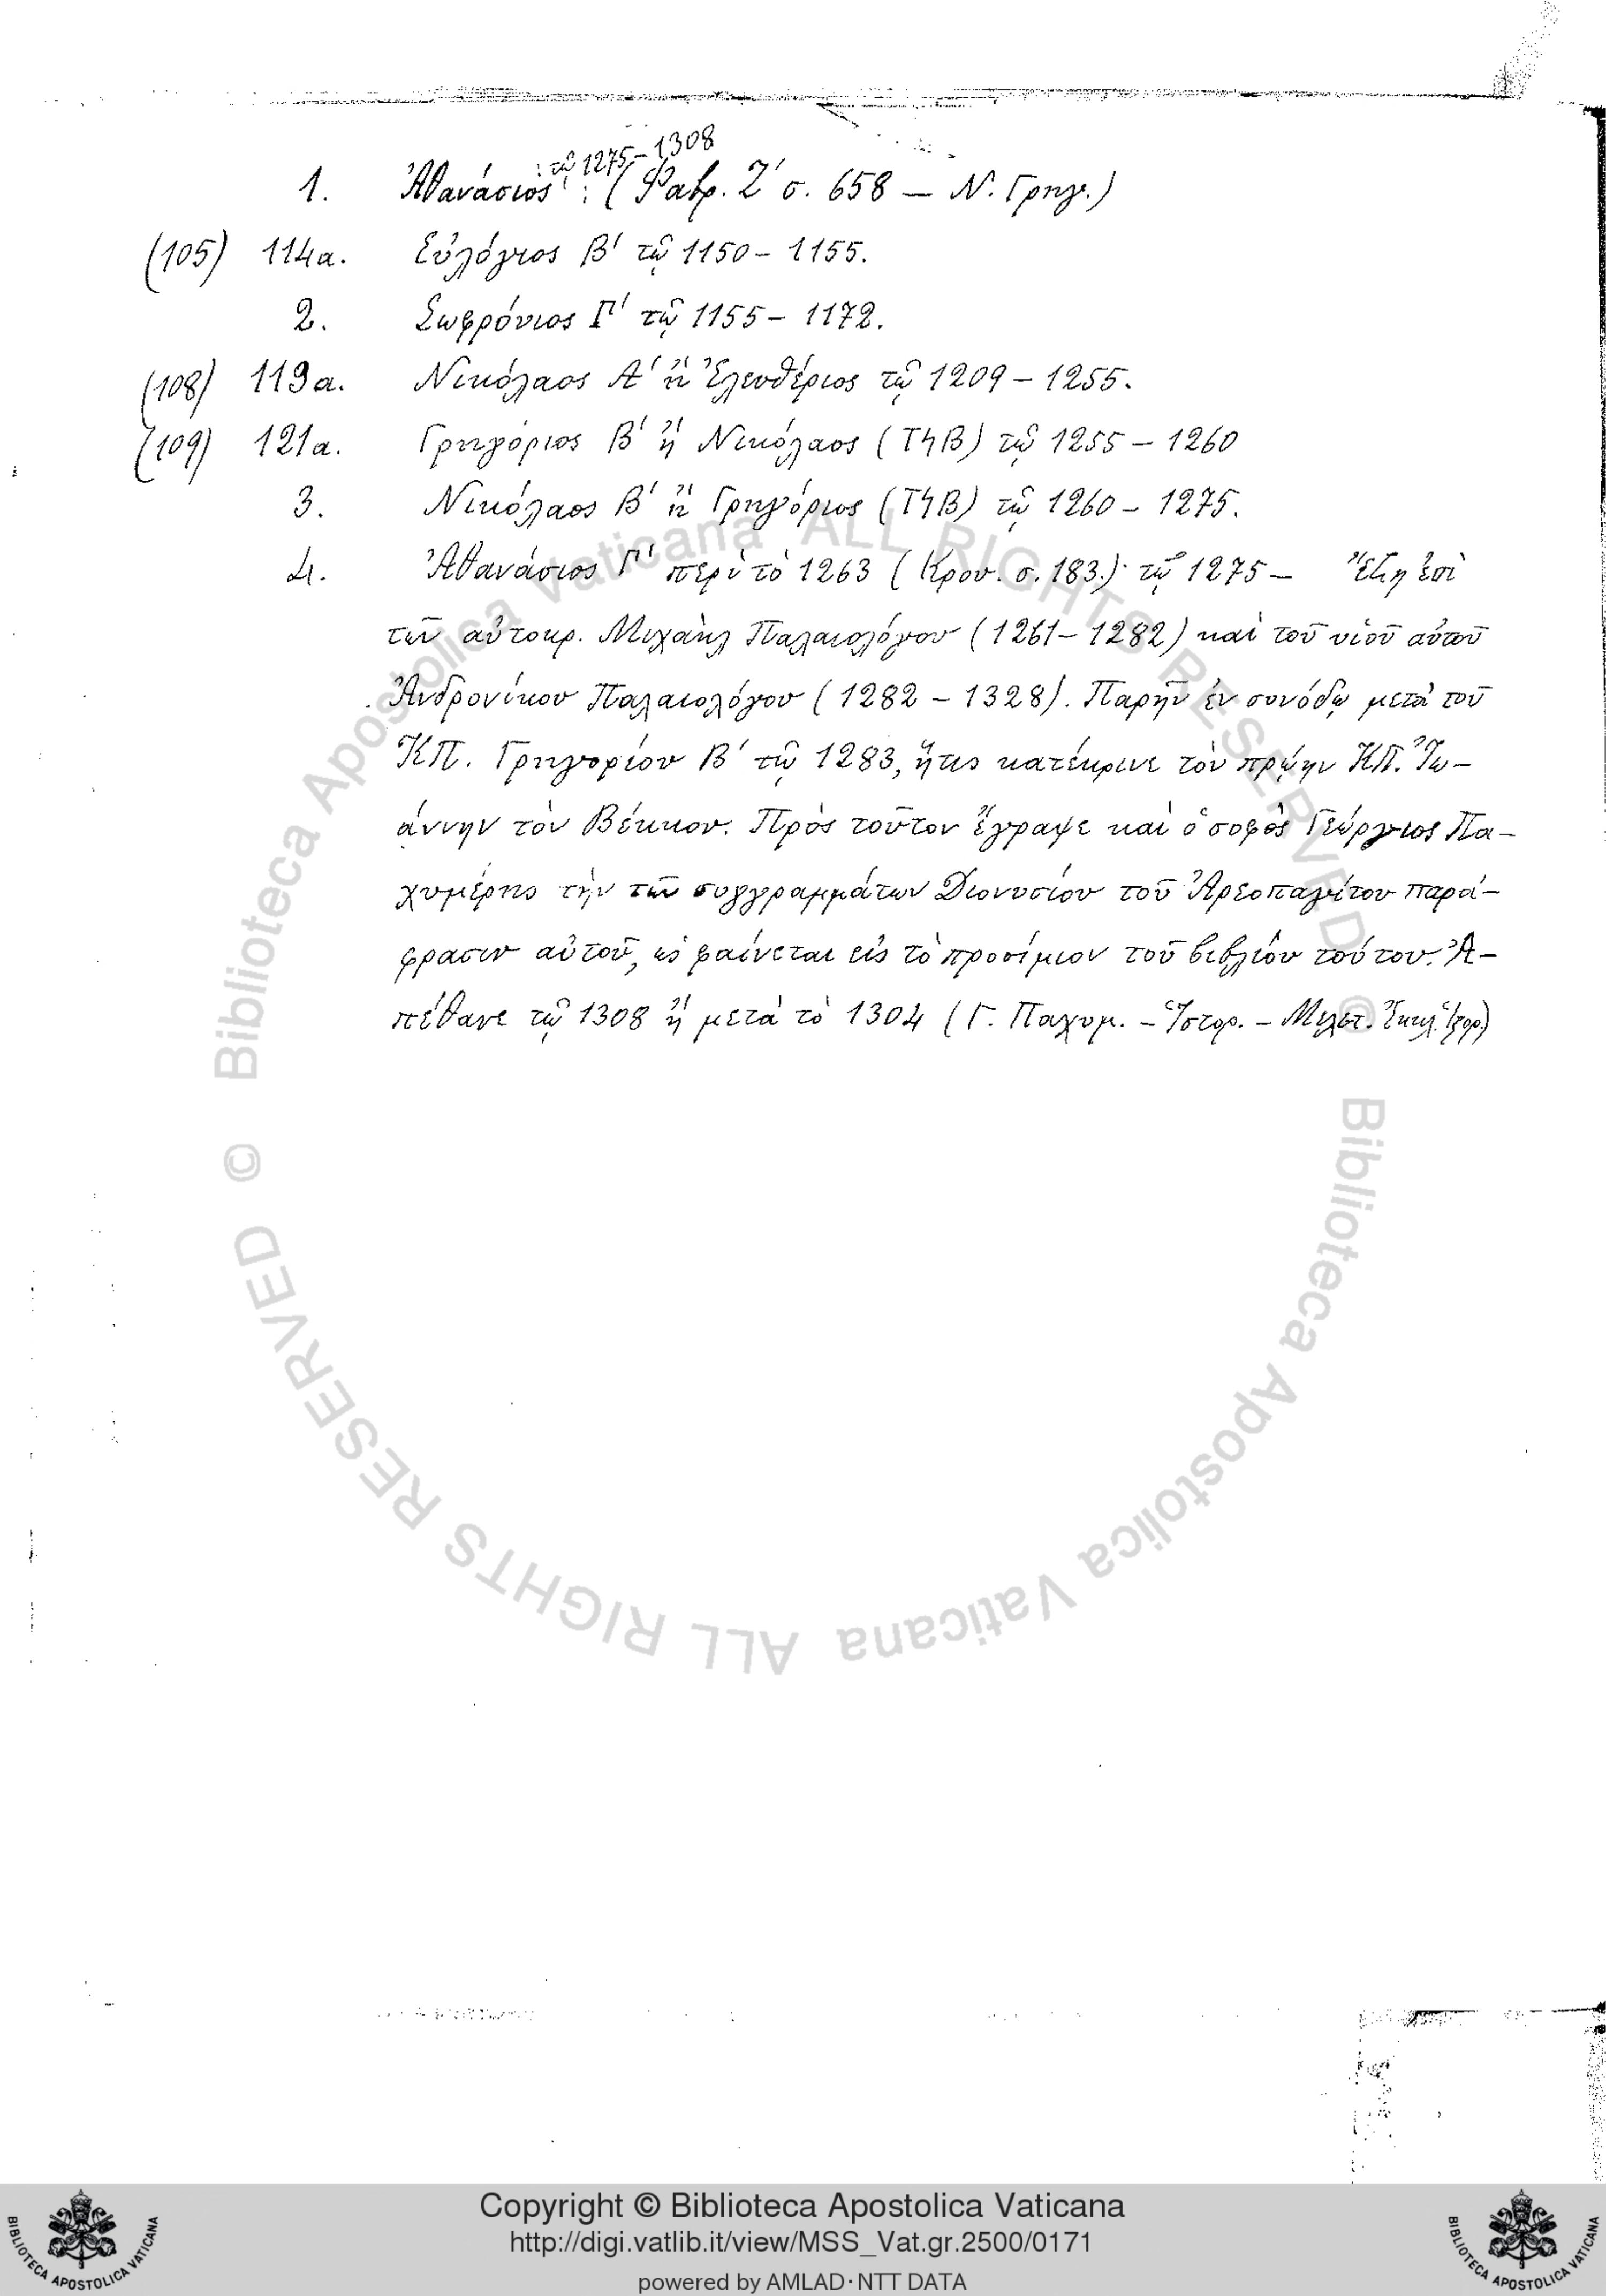 : τῷ 1275 – 1308
1. Ἀθανάσιος : (Φαβρ. Ζ΄ σ. 658 – Ν. Γρηγ.)
(105) 114α. Εὐλόγιος Β΄ τῷ 1150 – 1155.
2. Σωφρόνιος Γ΄ τῷ 1155 – 1172.
(108) 119α. Νικόλαος Α΄ ἢ Ἐλευθέριος τῷ 1209 – 1255.
(109) 121α. Γρηγόριος Β΄ ἢ Νικόλαος (ΤϞΒ) τῷ 1255 – 1260
3. Νικόλαος Β΄ ἢ Γρηγόριος (ΤϞΒ) τῷ 1260 – 1275.
4. Ἀθανάσιος Γ΄ περὶ τὸ 1263 (Κρου. σ. 183.)· τῷ 1275 – Ἔζη ἐπὶ
τῶν αὐτοκρ. Μιχαὴλ Παλαιολόγου (1261 – 1282) καὶ τοῦ υἱοῦ αὐτοῦ
Ἀνδρονίκου Παλαιολόγου (1282 – 1328). Παρῆν ἐν συνόδῳ μετὰ τοῦ
ΚΠ. Γρηγορίου Β΄ τῷ 1283, ἥτις κατέκρινε τὸν πρώην ΚΠ. Ἰω–
άννην τὸν Βέκκον. Πρὸς τοῦτον ἔγραψε καὶ ὁ σοφὸς Γεώργιος Πα–
χυμέρης τὴν τῶν συγγραμμάτων Διονυσίου τοῦ Ἀρεοπαγίτου παρά–
φρασιν αὐτοῦ, ὡς φαίνεται εἰς τὸ προοίμιον τοῦ βιβλίου τούτου. Ἀ–
πέθανε τῷ 1308 ἢ μετὰ τὸ 1304 (Γ. Παχυμ. – Ἱστορ. – Μελετ. Ἐκκλ. Ἱστορ.)
© Biblioteca Apostolica Vaticana ALL RIGHTS RESERVED
© Biblioteca Apostolica Vaticana ALL RIGHTS RESERVED
Copyright © Biblioteca Apostolica Vaticana
http://digi.vatlib.it/view/MSS_Vat.gr.2500/0171
powered by AMLAD·NTT DATA
BIBLIOTECA APOSTOLICA VATICANA
BIBLIOTECA APOSTOLICA VATICANA